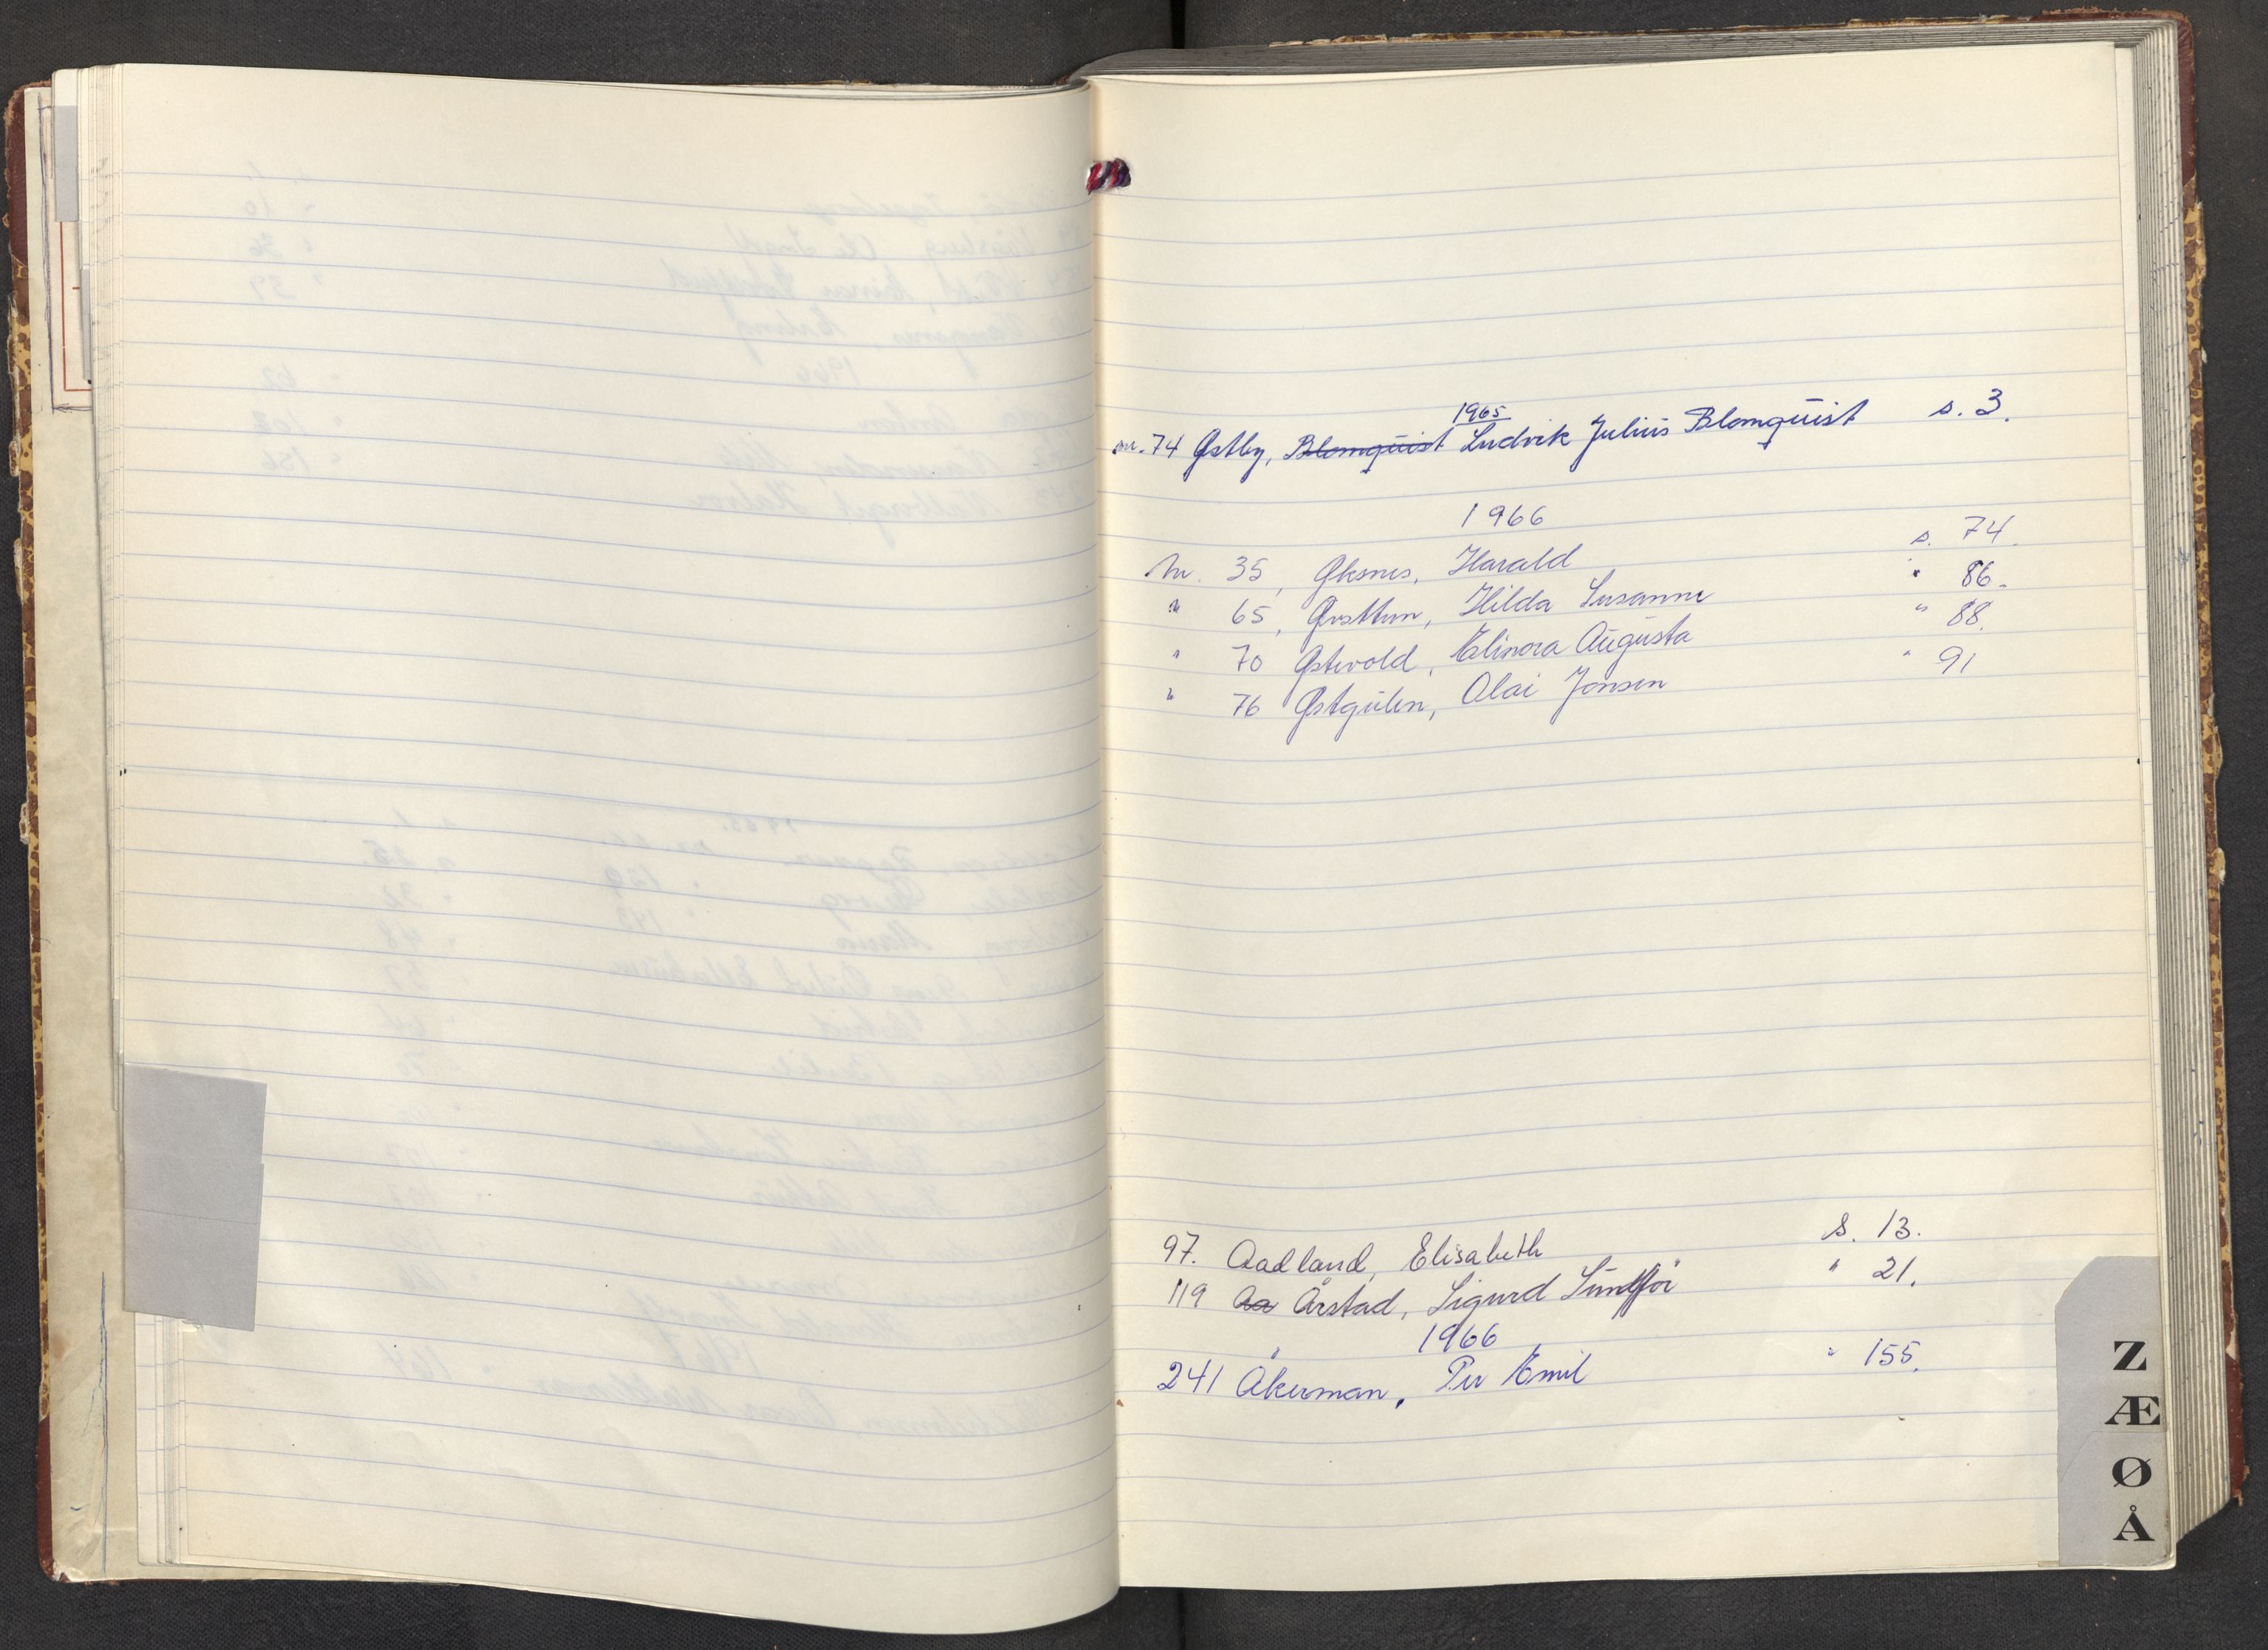 1965
nr. 74 Østby, Blomquist Ludvik Julius Blomquist s. 3.
1966
Nr. 35, Øksnes, Harald s. 74.
" 65, Ørsttun, Hilda Susanne " 86.
" 70 Østevold, Elinora Augusta " 88.
" 76 Østgulen, Olai Jonsen " 91
97. Aadland, Elisabeth s. 13.
119 Aa Årstad, Sigurd Sundfør " 21.
1966
241 Åkerman, Per Emil " 155.
Z
Æ
Ø
Å